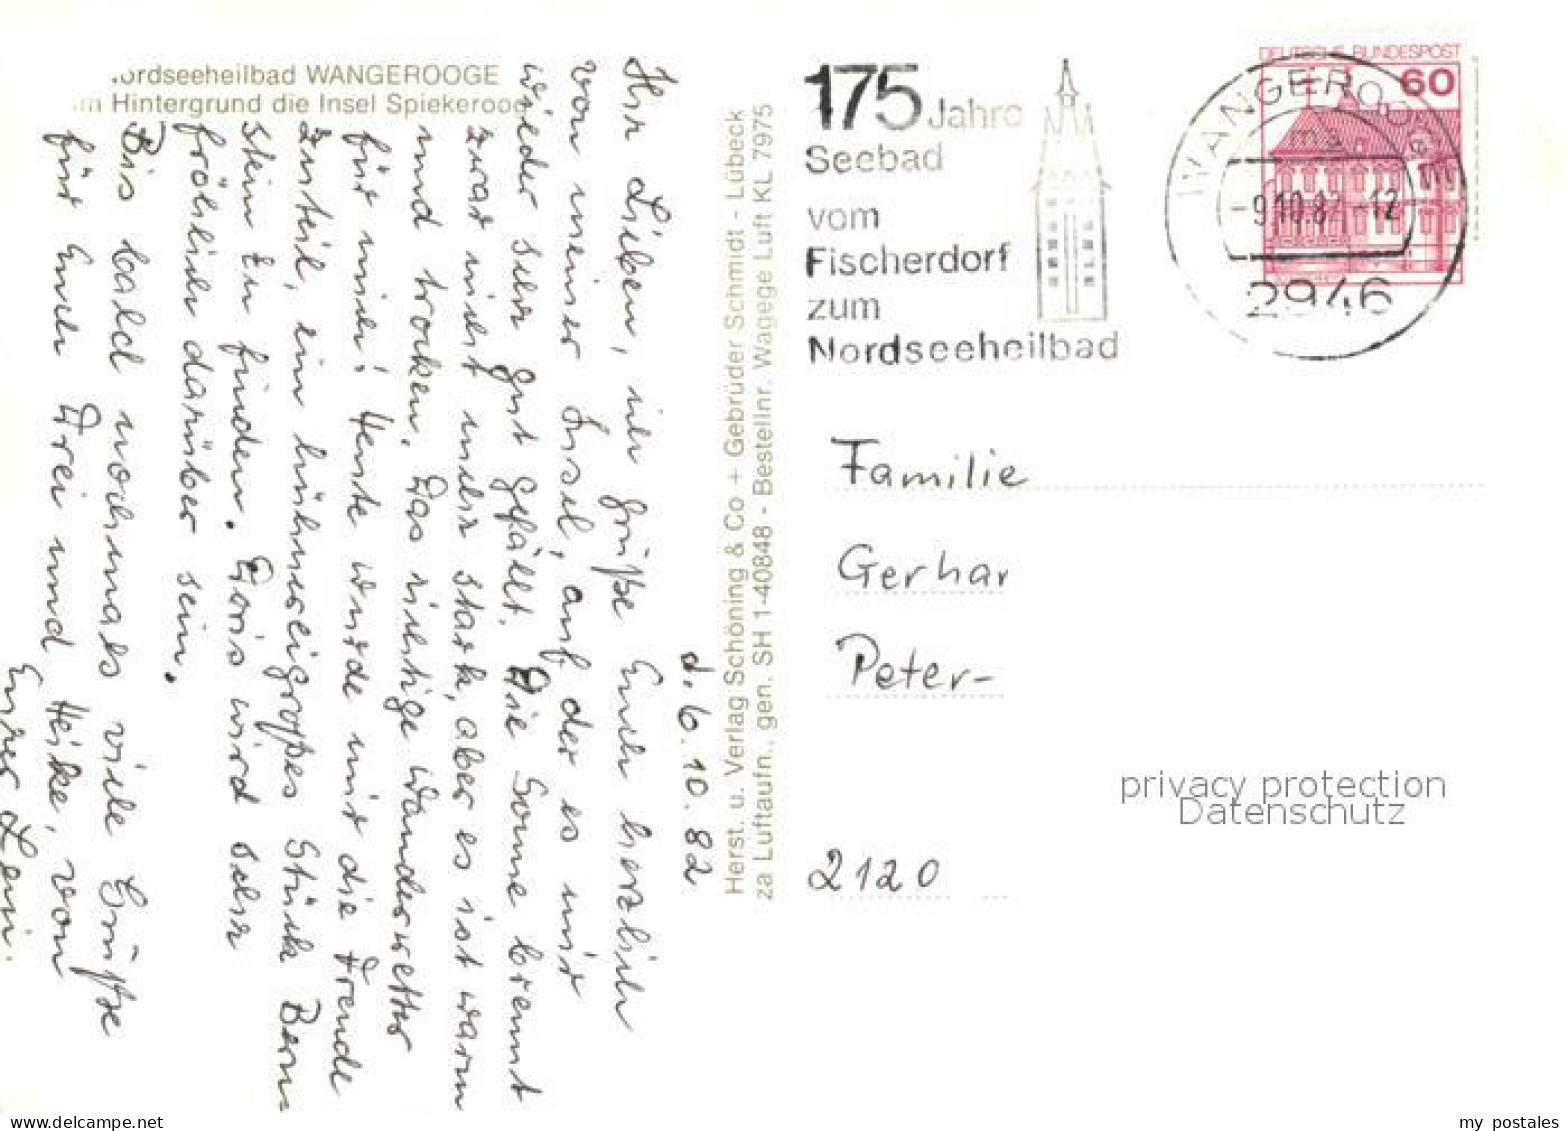 Nordseeheilbad WANGEROOGE
im Hintergrund die Insel Spiekeroog
d. 6. 10. 82
Ihr Lieben, ich grüße Euch herzlich
von meiner Insel, auf der es mir
wieder sehr gut gefällt. Die Sonne brennt
zwar nicht mehr stark, aber es ist warm
und trocken. Das richtige Wanderwetter
für mich! Heute wurde mir die Freude
zuteil, ein hühnereigroßes Stück Bern-
stein zu finden. Doris wird sehr
fröhlich darüber sein.
Bis bald nochmals viele Grüße
für Euch Drei und Heike, von
Eurer Leni.
Herst. u. Verlag Schöning & Co + Gebrüder Schmidt - Lübeck
za Luftaufn., gen. SH 1-40848 - Bestellnr. Wagege Luft KL 7975
175 Jahre
Seebad
vom
Fischerdorf
zum
Nordseeheilbad
DEUTSCHE BUNDESPOST
60
WANGEROOGE
ma
-9.10.82-12
2946
Familie
Gerhar
Peter-
2120
privacy protection
Datenschutz
www.delcampe.net
my_postales